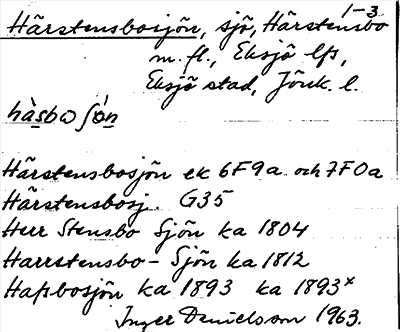 1-3
Härstensbosjön, sjö, Härstensbo
m. fl., Eksjö lfs,
Eksjö stad, Jönk. l.
hàsbω ʃön
Härstensbosjön ek 6F9a och 7F0a
Härstensbosj. G35
Herr Stensbo Sjön ka 1804
Harrstensbo-Sjön ka 1812
Hassbosjön ka 1893 ka 1893x
Inger Danielsson 1963.